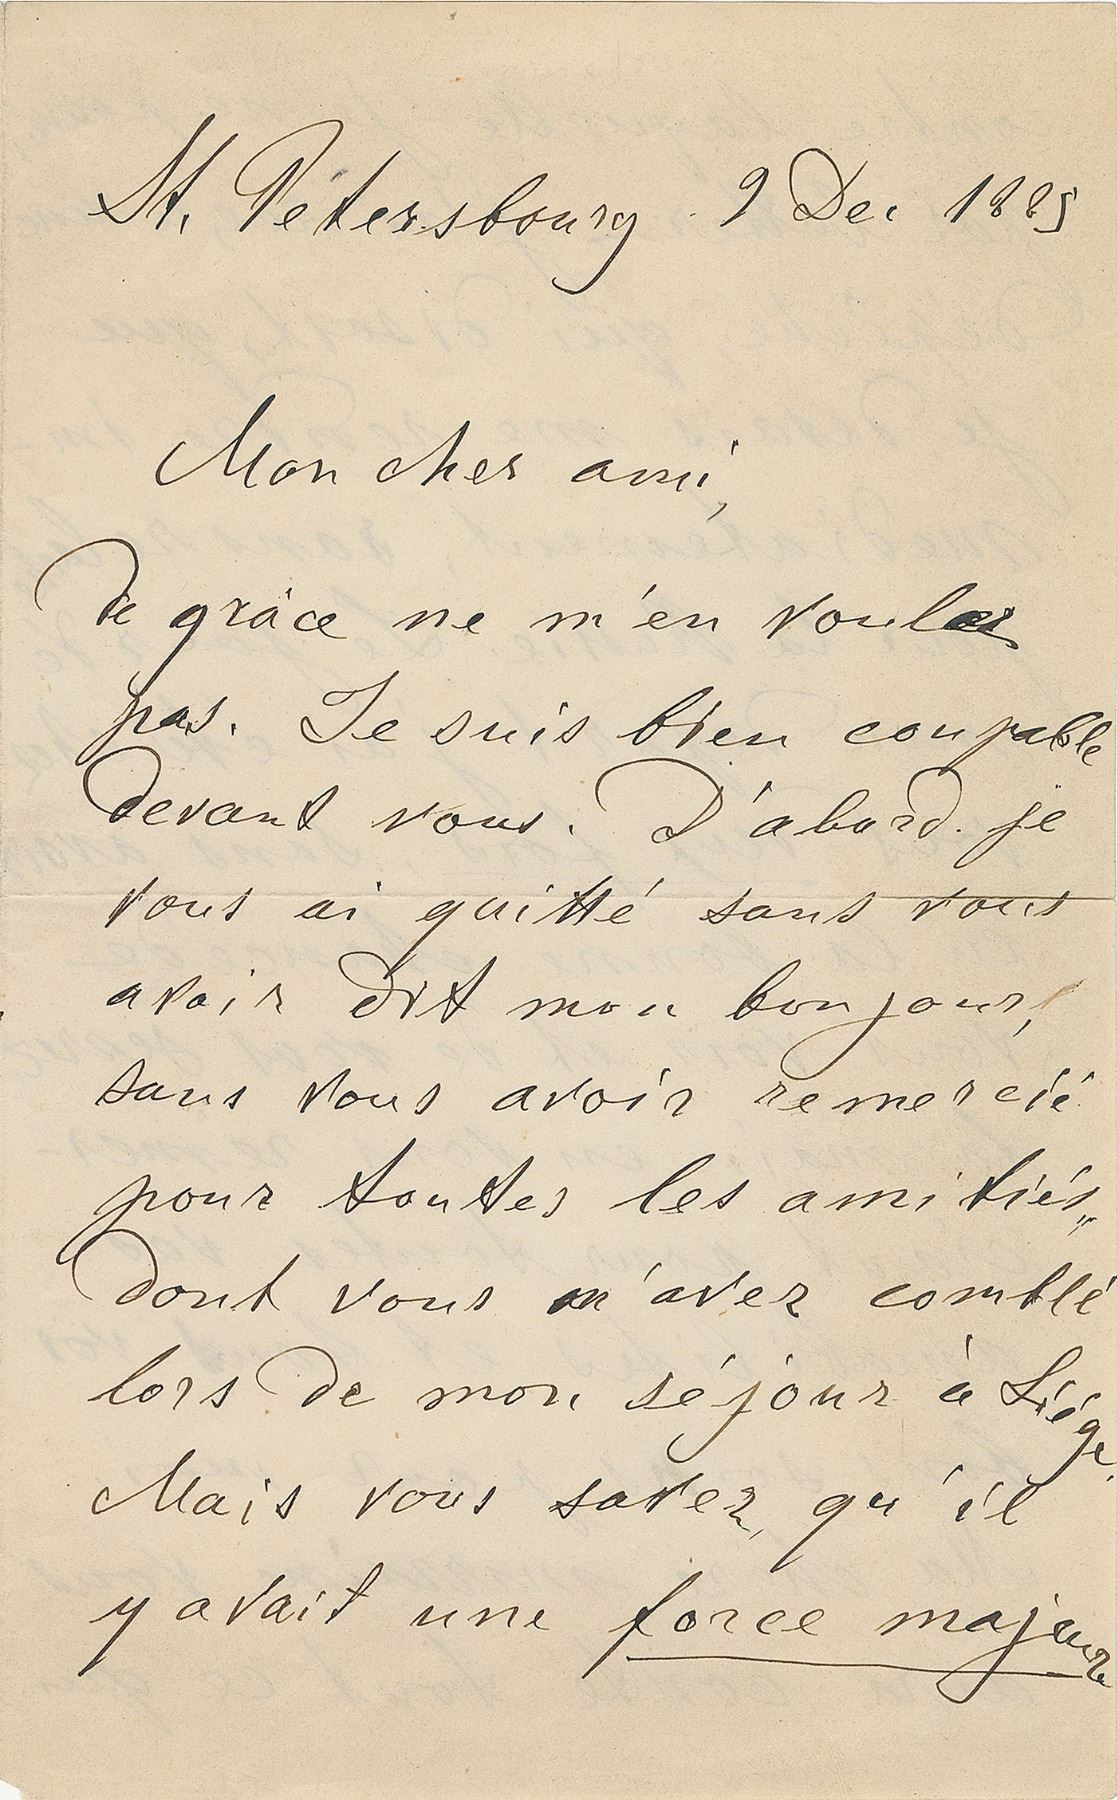 St. Pétersbourg 9 Dec 1885
Mon cher ami,
De grâce ne m'en voulez
pas. Je suis bien coupable
devant vous. D'abord je
vous ai quitté sans vous
avoir dit mon bonjour,
sans vous avoir remercié
pour toutes les amitiés,
dont vous m'avez comblé
lors de mon séjour à Liége.
Mais vous savez, qu'il
y avait une force majeure